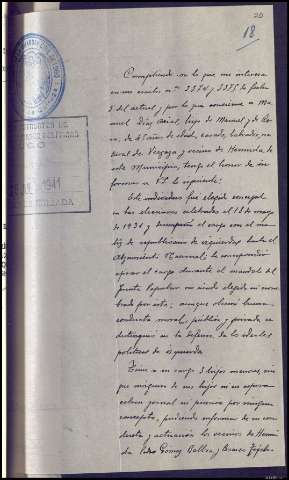 20
18
1941
Cumpliendo en lo que me interesa
en sus escritos nº 3374 y 3375 de fecha
5 del actual, y por lo que concierne a Ma-
nuel Díaz , hijo de Manuel y de
de 45 años de edad, casado, labrador, na-
tural de y vecino de
este Municipio, tengo el honor de in-
formar a V.S. lo siguiente:
Este individuo fue elegido concejal
en las elecciones celebradas el 12 de
de 1931 y el cargo con el ma-
tiz de republicano de izquierdas hasta el
Alzamiento Nacional; le correspondió
ejercer el cargo durante el mandato del
Frente Popular no siendo elegido ni nom-
brado por este; aunque observó buena
conducta moral, pública y privada, se
distinguió en la defensa de los ideales
políticos de izquierda.
Tiene a su cargo 3 hijos menores, sin
que ninguno de sus hijos ni su esposa
cobren jornal ni pension por ningun
concepto, pudiendo informar de su con-
ducta y actuación los vecinos de
Pedro Gomez y